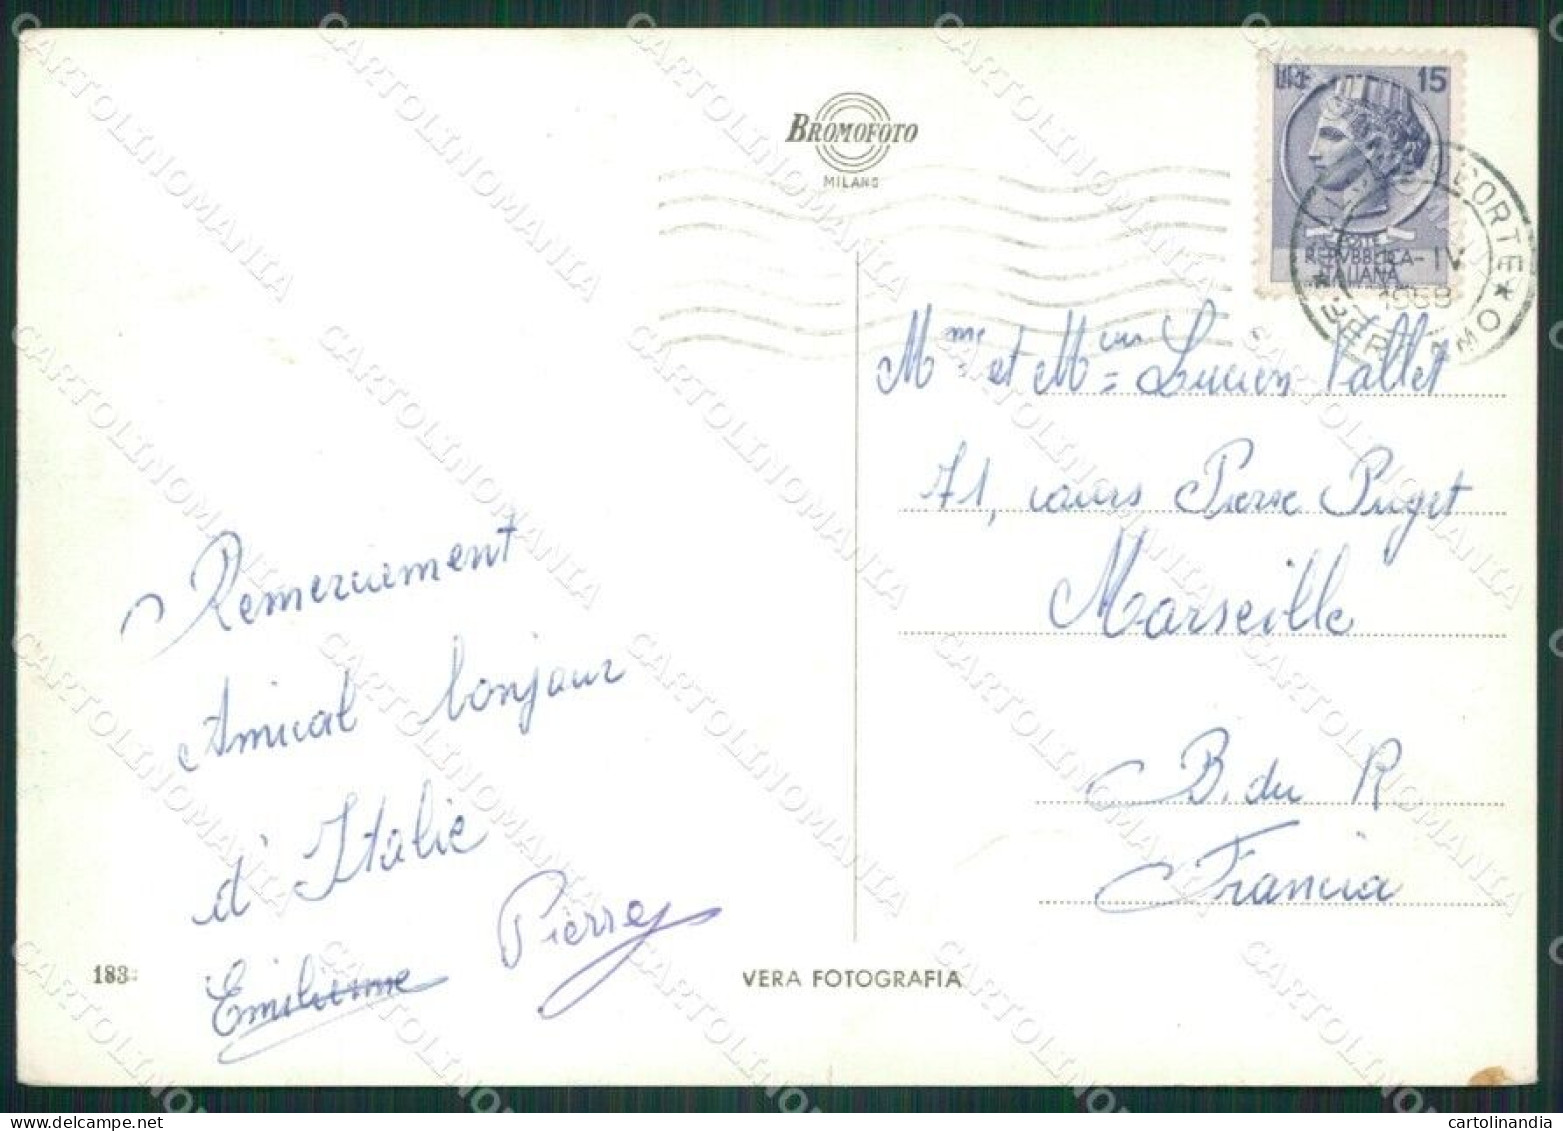 BROMOFOTO
MILANO
LIRE 15
POSTE
REPVBBLICA
ITALIANA
CORTE
IV
1958
Mme et Mr = Lucien Vallet
71, cours Pierre Puget
Marseille
B. du R
Francia
Remerciement
Amical bonjour
d'Italie
Emilienne Pierre
183
VERA FOTOGRAFIA
CARTOLINOMANIA
cartolinandia